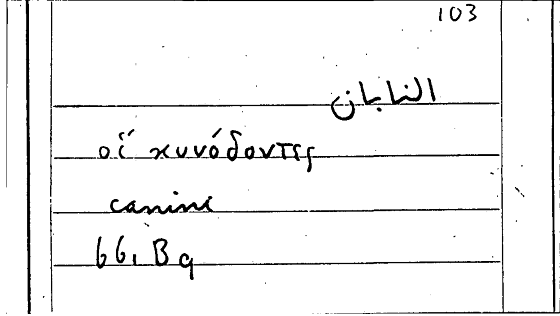 103
النابان
οἵ κυνόδοντες
canine
66, B9